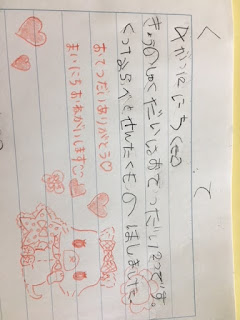 きょうのしゅくだいはおてつだい2つです。
くつならべとせんたくものほしました。
おてつだいありがとう♡
まいにちおねがいします♡